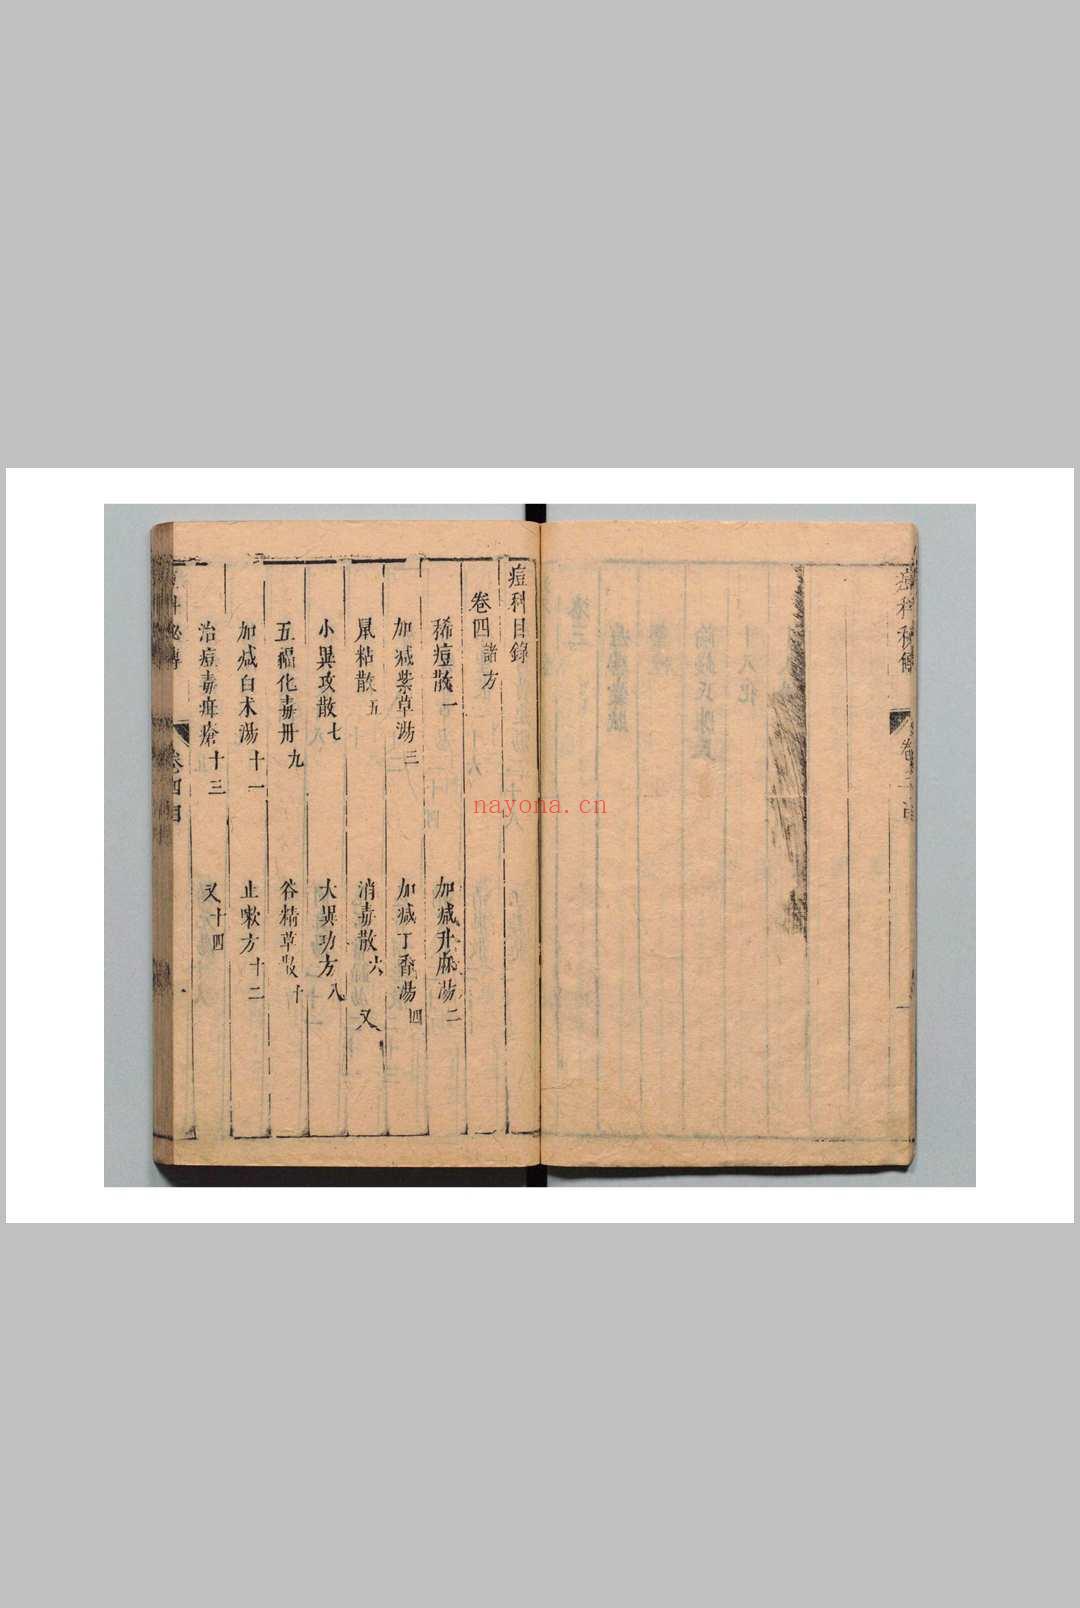 痘科目錄
卷四 諸方
稀痘散一
加减升麻湯二
加减紫草湯三
加减丁香湯四
鼠粘散五
消毒散六 又
小異攻散七
大異功方八
五福化毒丹九
谷精草散十
加减白术湯十一
止嗽方十二
治痘毒疳瘡十三
又十四
卷四目
痘科秘傳
nayona.cn